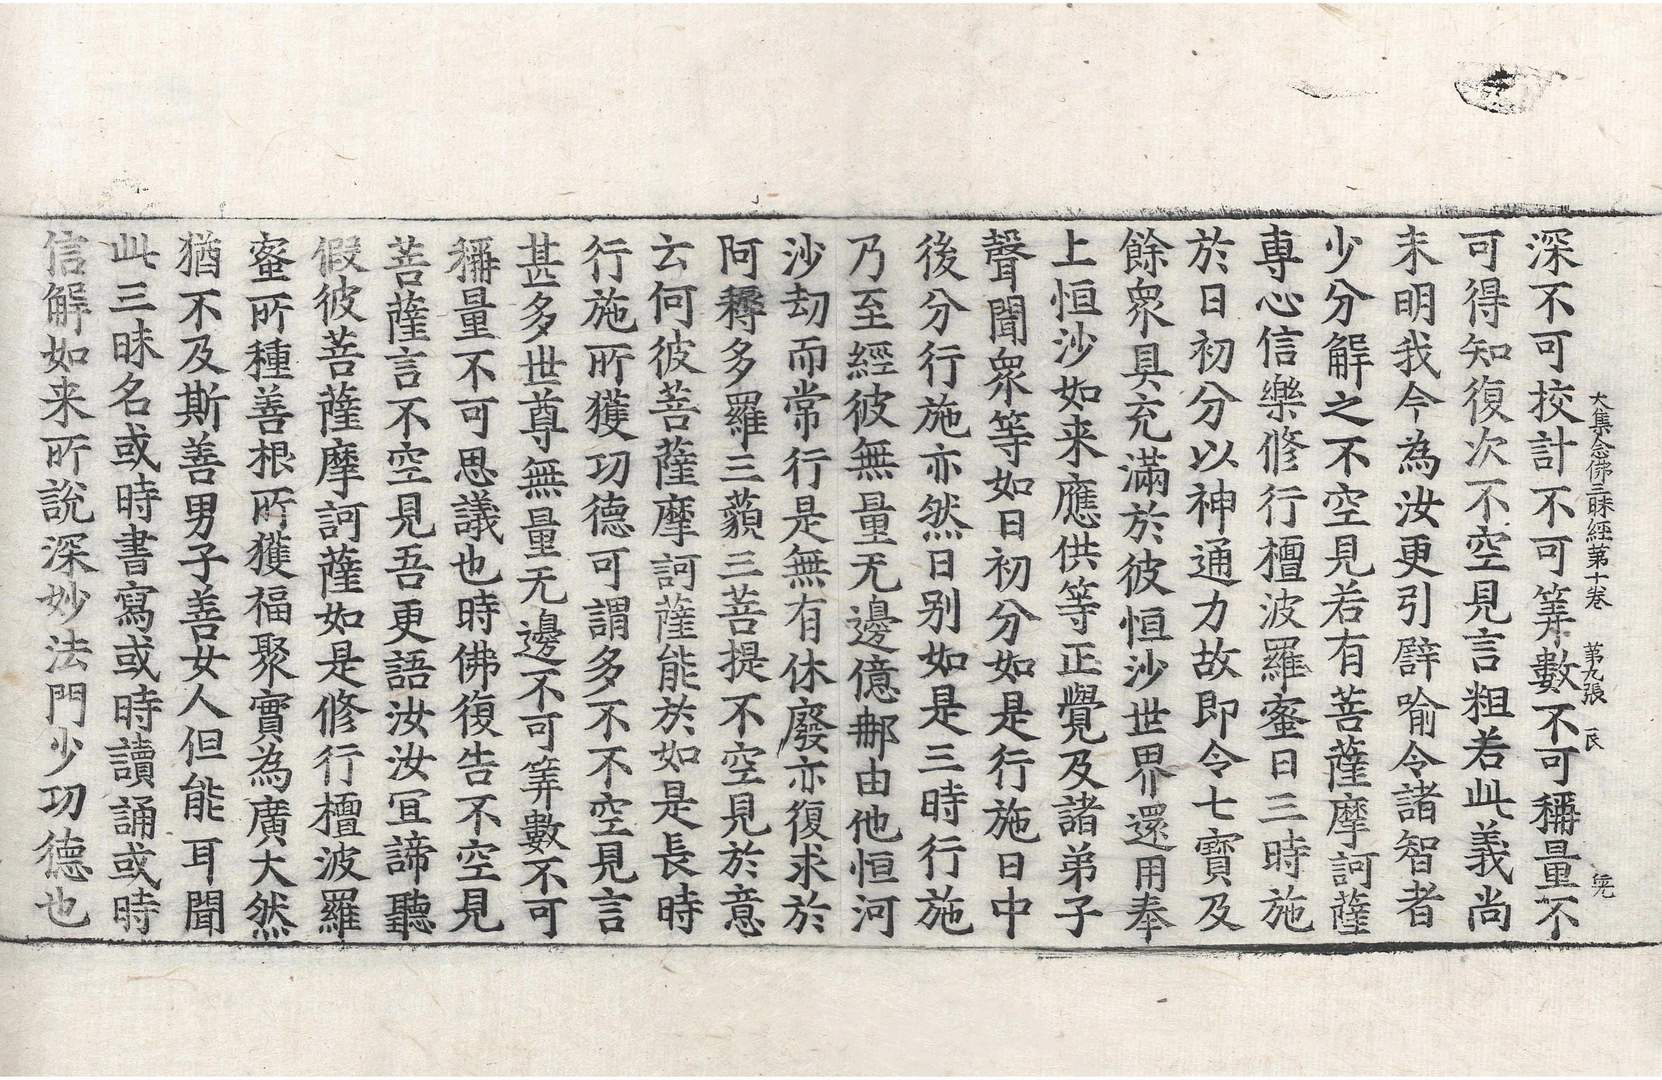 大集念佛三昧經第十卷　第九張　民
深不可挍計不可筭數不可稱量不
可得知復次不空見言粗若此義尚
未明我今為汝更引譬喻令諸智者
少分解之不空見若有菩薩摩訶薩
專心信樂修行檀波羅蜜日三時施
於日初分以神通力故即令七寶及
餘衆具充滿於彼恒沙世界還用奉
上恒沙如来應供等正覺及諸弟子
聲聞衆等如日初分如是行施日中
後分行施亦然日别如是三時行施
乃至經彼無量无邊億𨚗由他恒河
沙劫而常行是無有休廢亦復求於
阿耨多羅三藐三菩提不空見於意
云何彼菩薩摩訶薩能於如是長時
行施所獲功德可謂多不不空見言
甚多世尊無量无邊不可筭數不可
稱量不可思議也時佛復告不空見
菩薩言不空見吾更語汝汝冝諦聽
假彼菩薩摩訶薩如是修行檀波羅
蜜所種善根所獲福聚實為廣大然
猶不及斯善男子善女人但能耳聞
此三昧名或時書寫或時讀誦或時
信解如来所說深妙法門少功德也